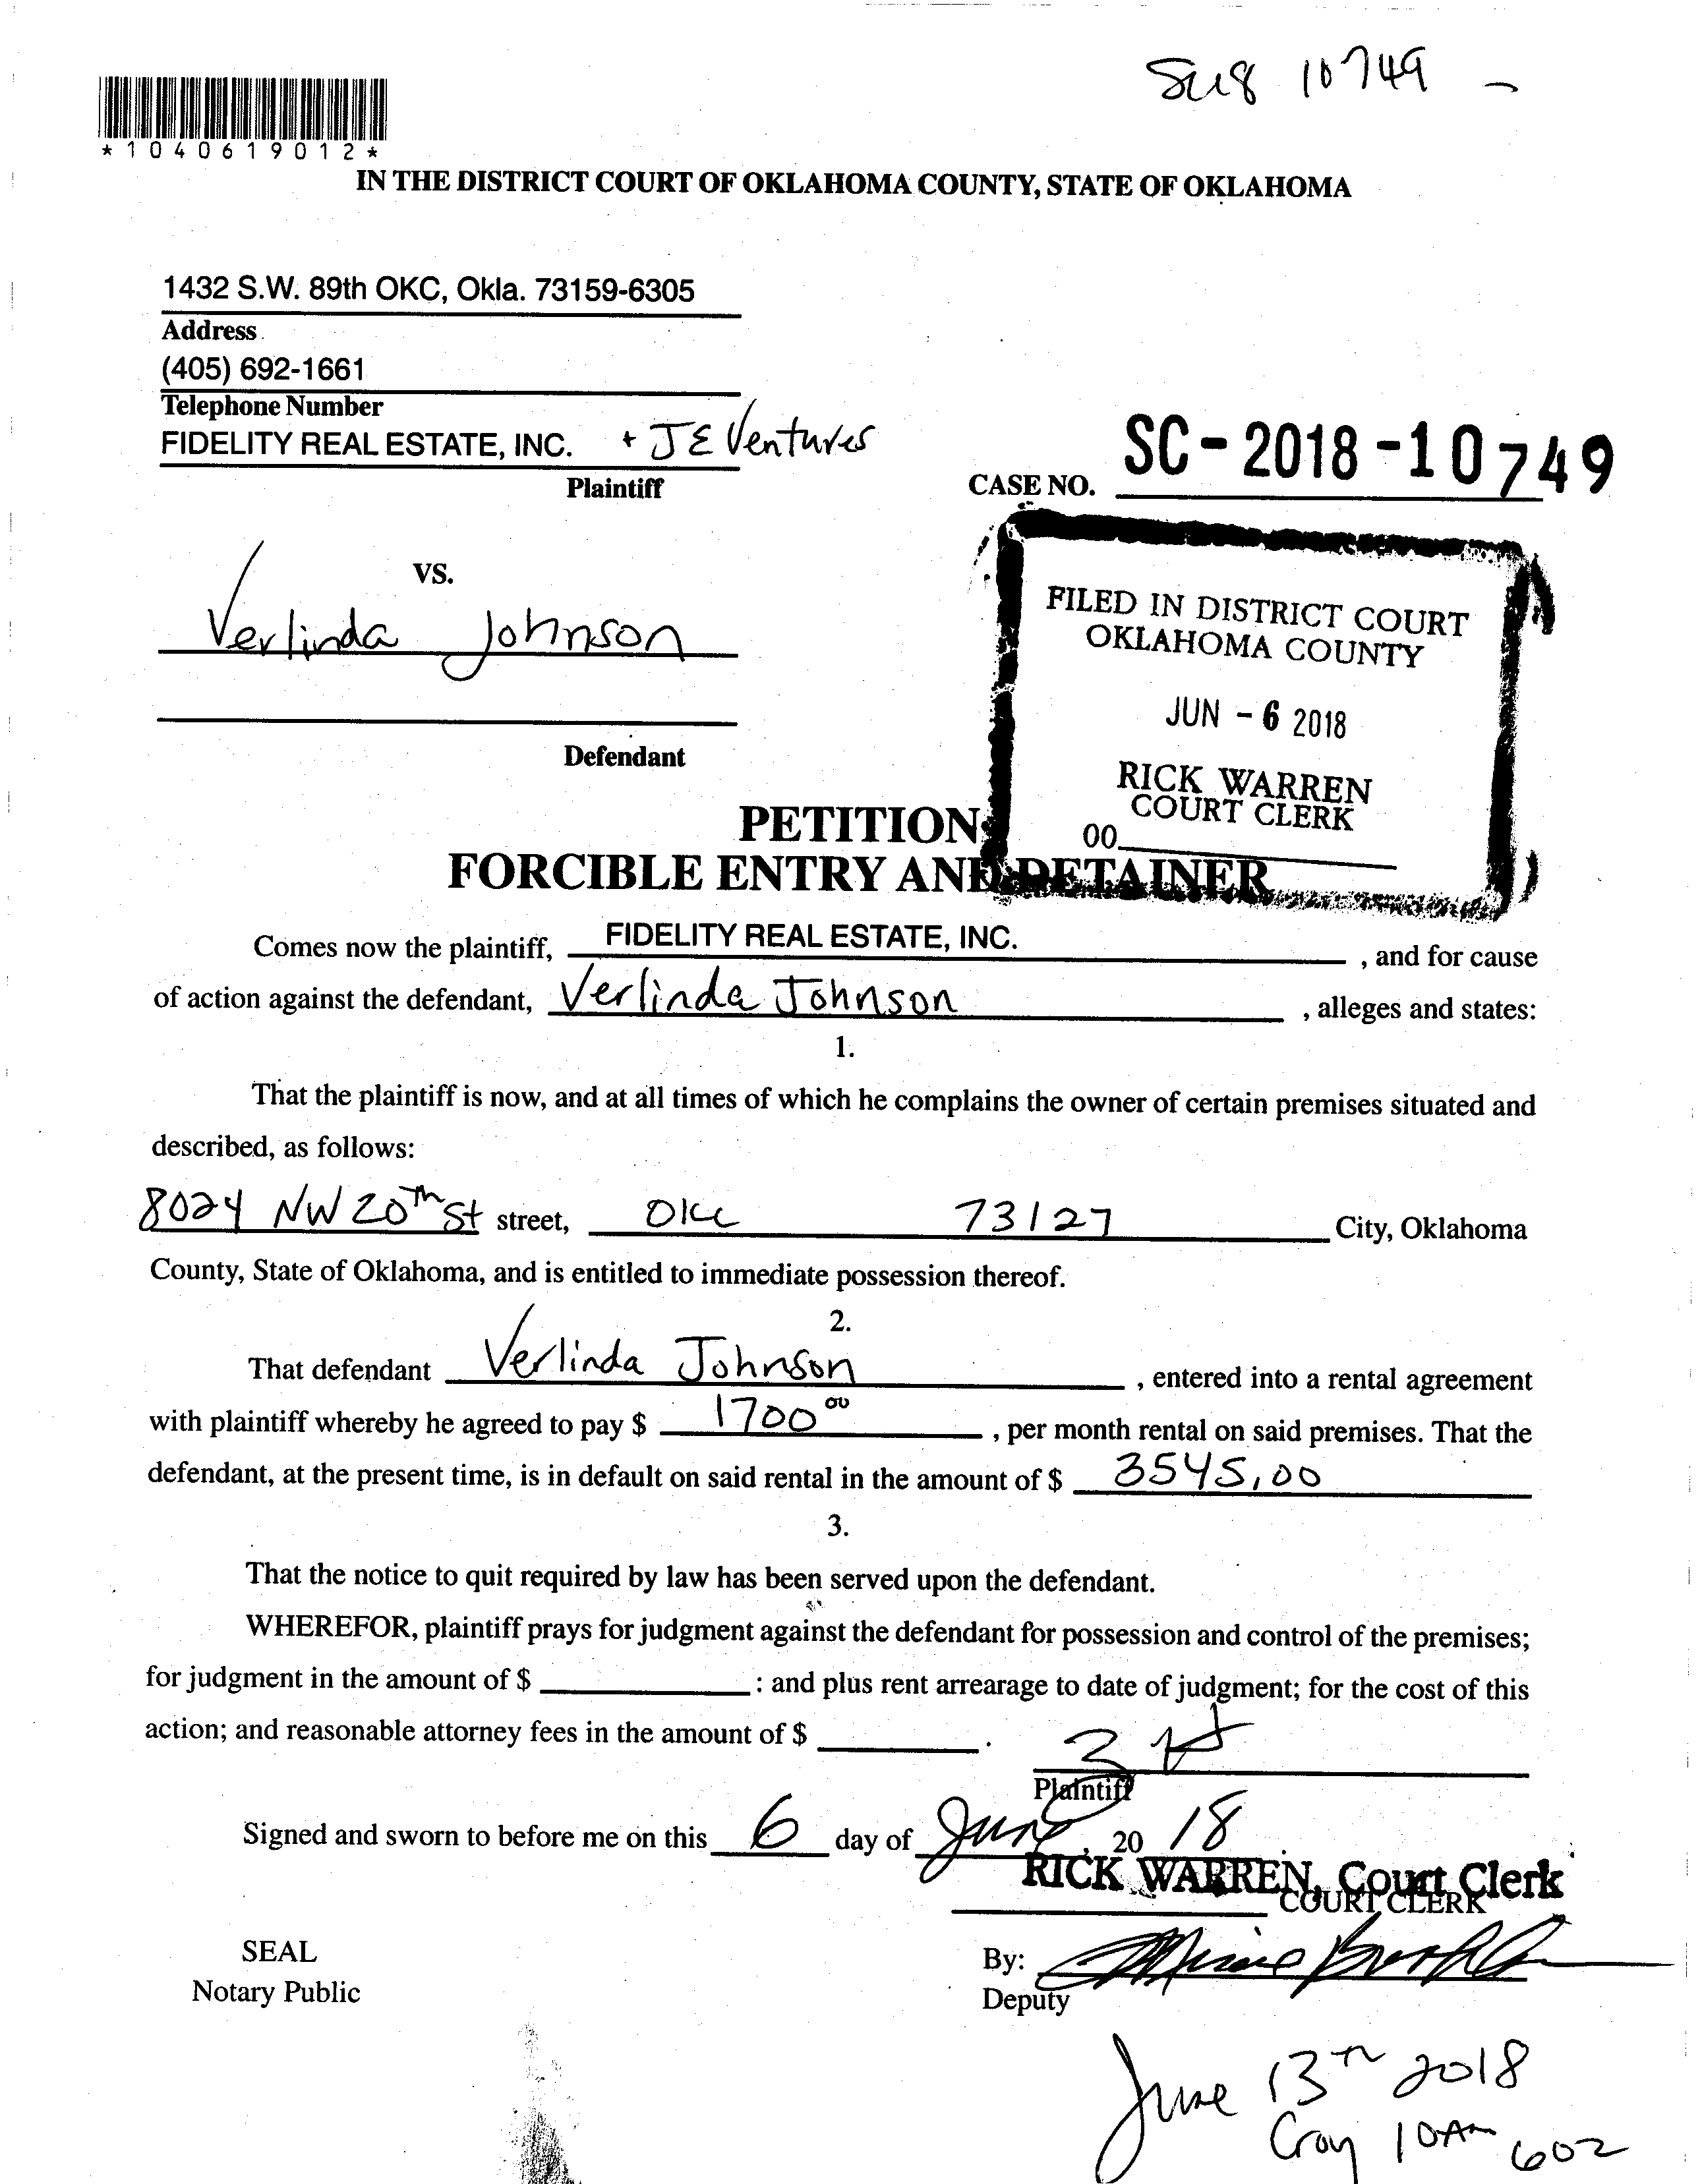 10749 -
*1040619012*
IN THE DISTRICT COURT OF OKLAHOMA COUNTY, STATE OF OKLAHOMA
1432 S.W. 89th OKC, Okla. 73159-6305
Address
(405) 692-1661
Telephone Number
FIDELITY REAL ESTATE, INC. + JE Ventures
Plaintiff
CASE NO. SC-2018-10749
VS.
Verlinda Johnson
Defendant
FILED IN DISTRICT COURT
OKLAHOMA COUNTY
JUN - 6 2018
RICK WARREN
COURT CLERK
00
PETITION
FORCIBLE ENTRY AND DETAINER
Comes now the plaintiff, FIDELITY REAL ESTATE, INC. , and for cause
of action against the defendant, Verlinda Johnson , alleges and states:
1.
That the plaintiff is now, and at all times of which he complains the owner of certain premises situated and
described, as follows:
8024 NW 20th St street, OKC 73127 City, Oklahoma
County, State of Oklahoma, and is entitled to immediate possession thereof.
2.
That defendant Verlinda Johnson , entered into a rental agreement
with plaintiff whereby he agreed to pay $ 1700 00 , per month rental on said premises. That the
defendant, at the present time, is in default on said rental in the amount of $ 3545,00
3.
That the notice to quit required by law has been served upon the defendant.
WHEREFOR, plaintiff prays for judgment against the defendant for possession and control of the premises;
for judgment in the amount of $ : and plus rent arrearage to date of judgment; for the cost of this
action; and reasonable attorney fees in the amount of $ .
Plaintiff
Signed and sworn to before me on this 6 day of June, 20 18
RICK WARREN, Court Clerk
COURT CLERK
SEAL
Notary Public
By:
Deputy
June 13th 2018
10AM 602